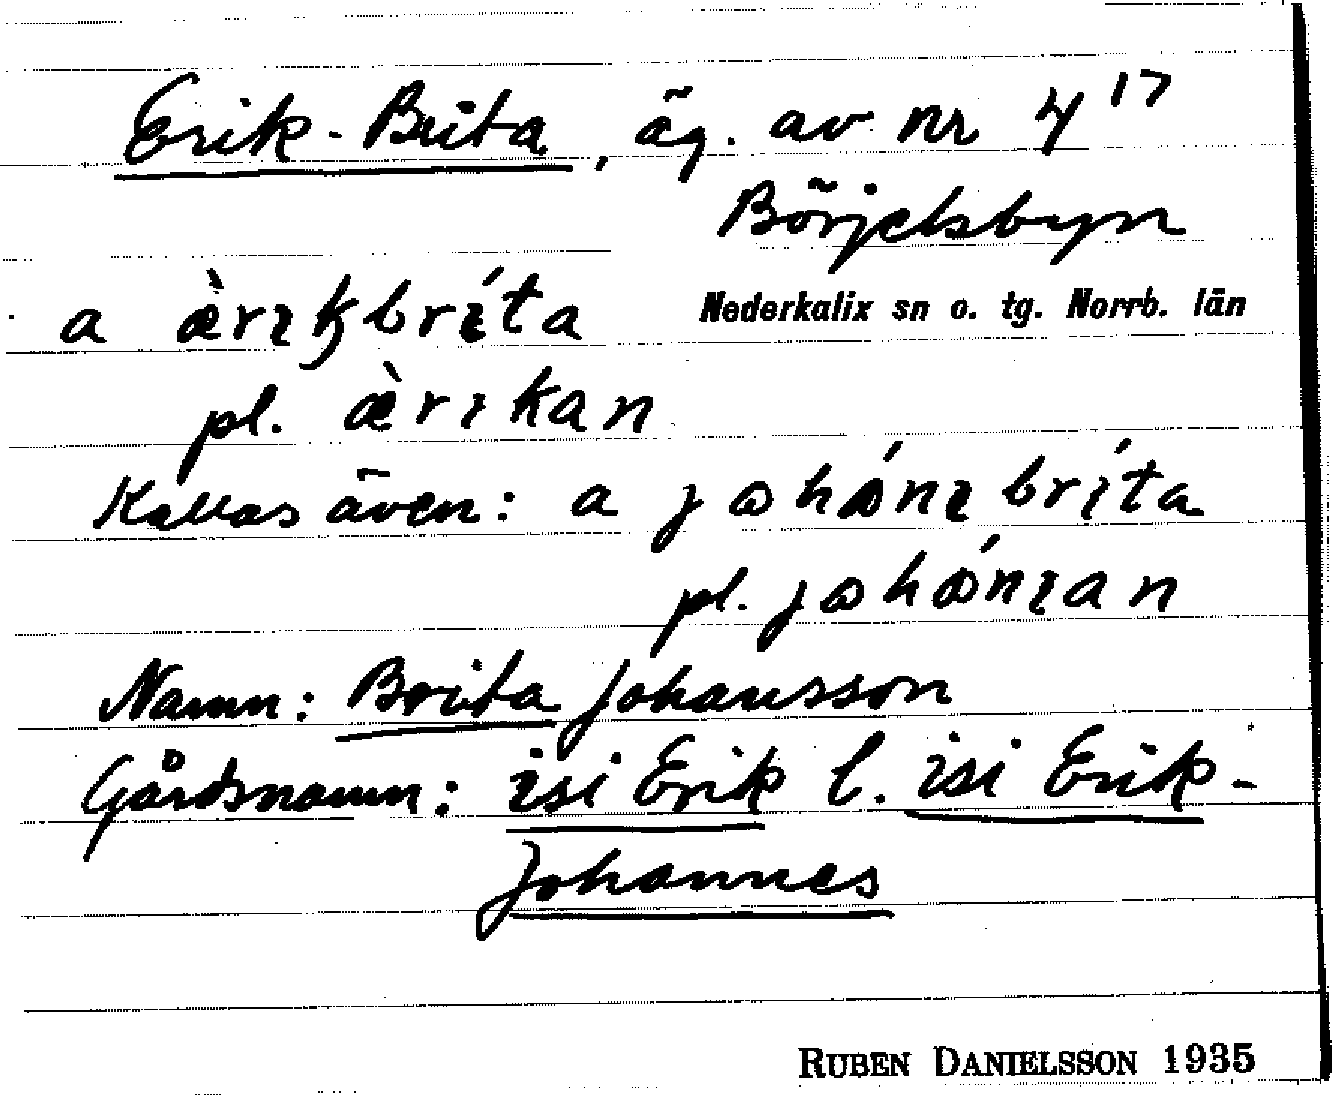 Erik-Brita, äg. av nr 4¹⁷
Börjelsbyn
Nederkalix sn o. tg. Norrb. län
a æ̀rɩkbríta
pl. æ̀rɩkan
Kallas även: a jɷhɷ́nɩbríta
pl. jɷhɷ́nɩan
Namn: Brita Johansson
Gårdsnamn: isi Erik l. isi Erik-
Johannes
RUBEN DANIELSSON 1935